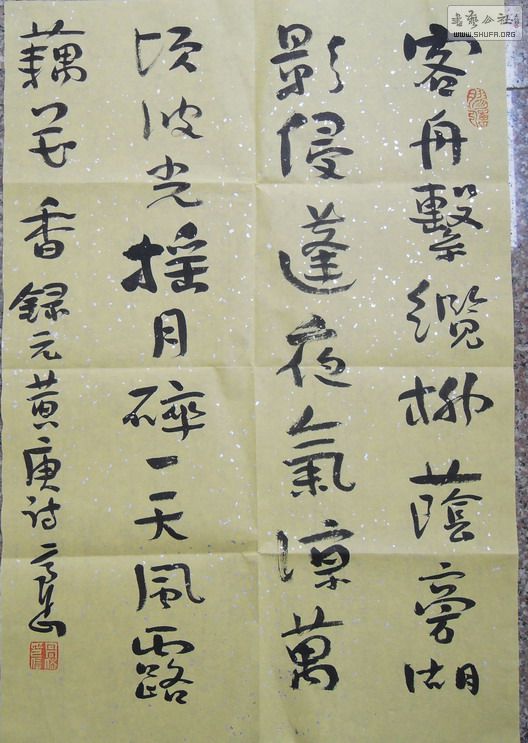 書藝公社
WWW.SHUFA.ORG
客舟繫纜柳蔭旁湖
影侵蓬夜氣涼萬
頃波光摇月碎一天風露
藕花香 録元黄庚詩